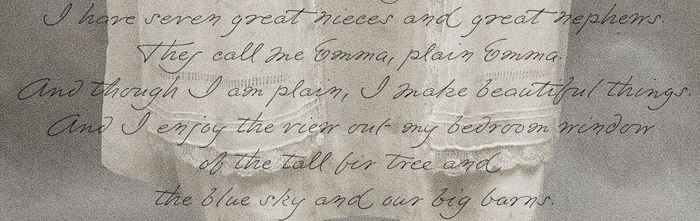 I have seven great nieces and great nephews.
They call me Emma, plain Emma.
And though I am plain, I make beautiful things.
And I enjoy the view out my bedroom window
of the tall fir tree and
the blue sky and our big barns.